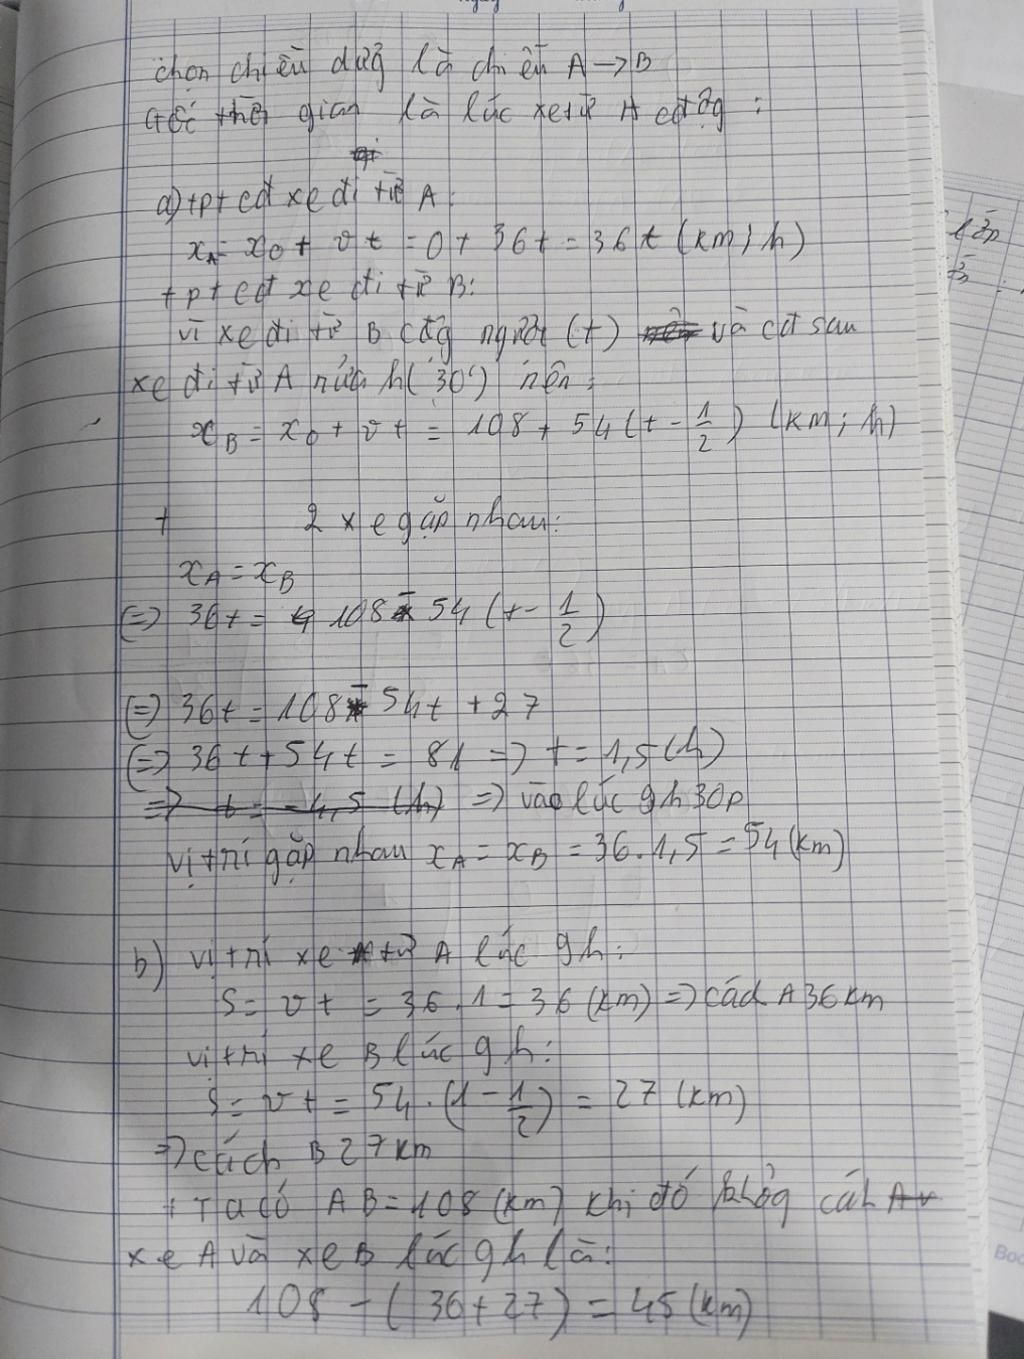 chọn chiều dg̃ là chiều A → B
Gốc thời gian là lúc xe từ A cđộg :
a) + pt cđ xe đi từ A :
x_A = x_0 + vt = 0 + 36t = 36t (km; h)
+ pt cđ xe đi từ B:
vì xe đi từ B cđg ngược (+) và cđ sau
xe đi từ A nửa h (30') nên :
x_B = x_0 + vt = 108 + 54 (t - 1/2) (km; h)
+ 2 xe gặp nhau :
x_A = x_B
(=) 36t = 108 - 54 (t - 1/2)
(=) 36t = 108 - 54t + 27
(=) 36t + 54t = 81 => t = 1,5 (h)
=> t = -4,5 (h) => vào lúc 9h30p
vị trí gặp nhau x_A = x_B = 36.1,5 = 54 (km)
b) vị trí xe từ A lúc 9h :
S = vt = 36.1 = 36 (km) => cách A 36 km
vị trí xe B lúc 9h :
S = vt = 54.(1 - 1/2) = 27 (km)
=> cách B 27 km
+ Ta có AB = 108 (km) khi đó khoảg cách
xe A và xe B lúc 9h là :
108 - (36 + 27) = 45 (km)